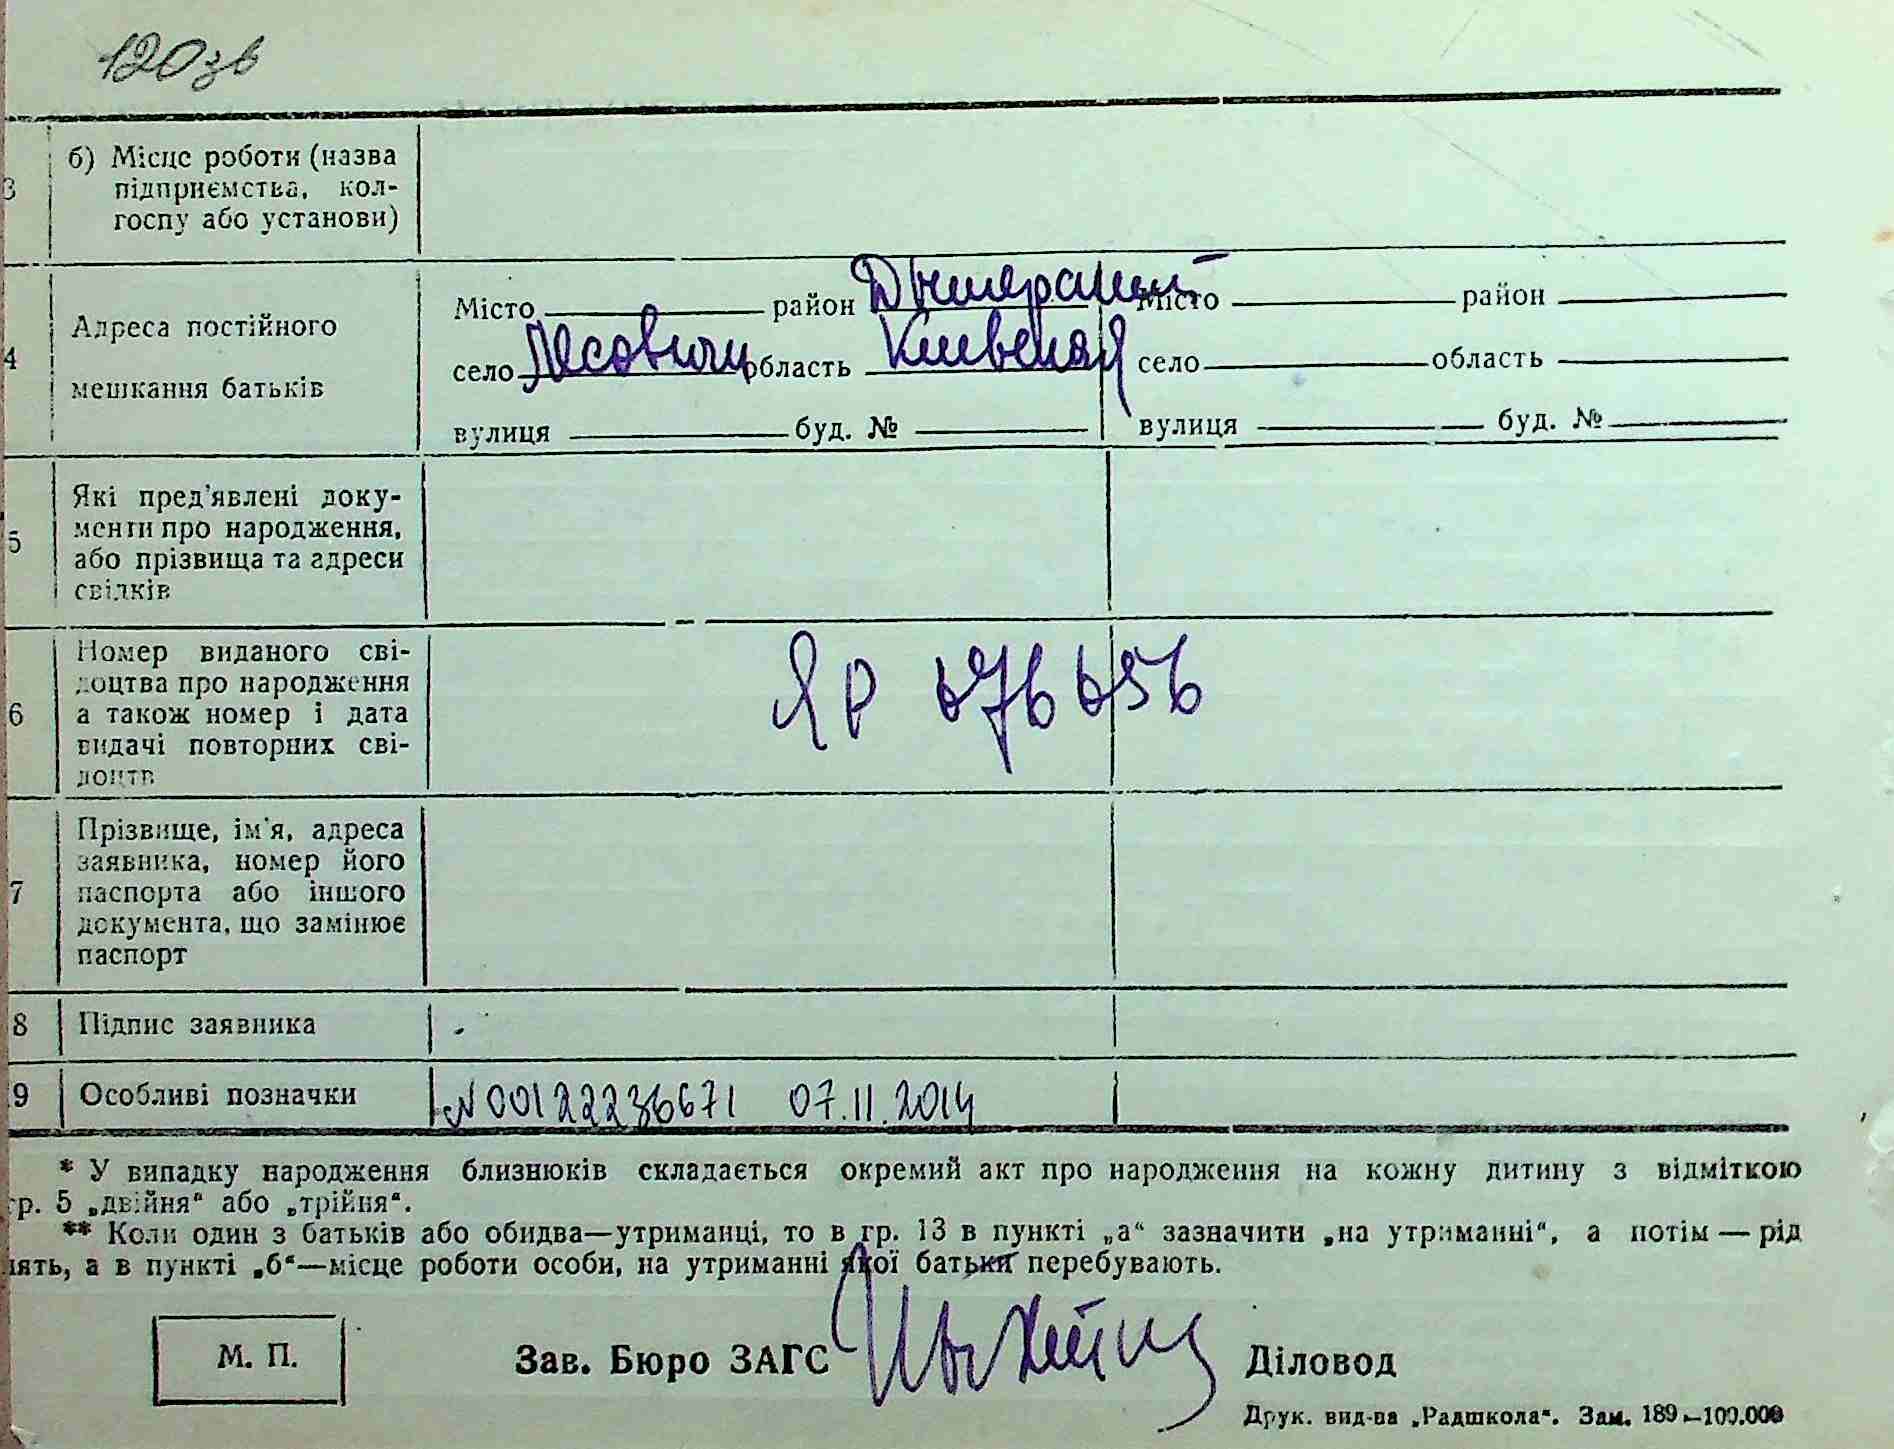 120зв
3 б) Місце роботи (назва
підприємства, кол-
госпу або установи)
4 Адреса постійного
мешкання батьків
Місто район Дымерский Місто район
село Лесовичи область Киевская село область
вулиця буд. № вулиця буд. №
5 Які пред'явлені доку-
менти про народження,
або прізвища та адреси
свідків
6 Номер виданого сві-
доцтва про народження
а також номер і дата
видачі повторних сві-
доцтв
ЯР 676656
7 Прізвище, ім'я, адреса
заявника, номер його
паспорта або іншого
документа, що замінює
паспорт
8 Підпис заявника
9 Особливі позначки N 00122236671 07.11.2014
* У випадку народження близнюків складається окремий акт про народження на кожну дитину з відміткою
гр. 5 „двійня“ або „трійня“.
** Коли один з батьків або обидва—утриманці, то в гр. 13 в пункті „а“ зазначити „на утриманні“, а потім — рід
нять, а в пункті „б“—місце роботи особи, на утриманні якої батьки перебувають.
М. П. Зав. Бюро ЗАГС Діловод
Друк. вид-ва „Радшкола“. Зам. 189—100.000